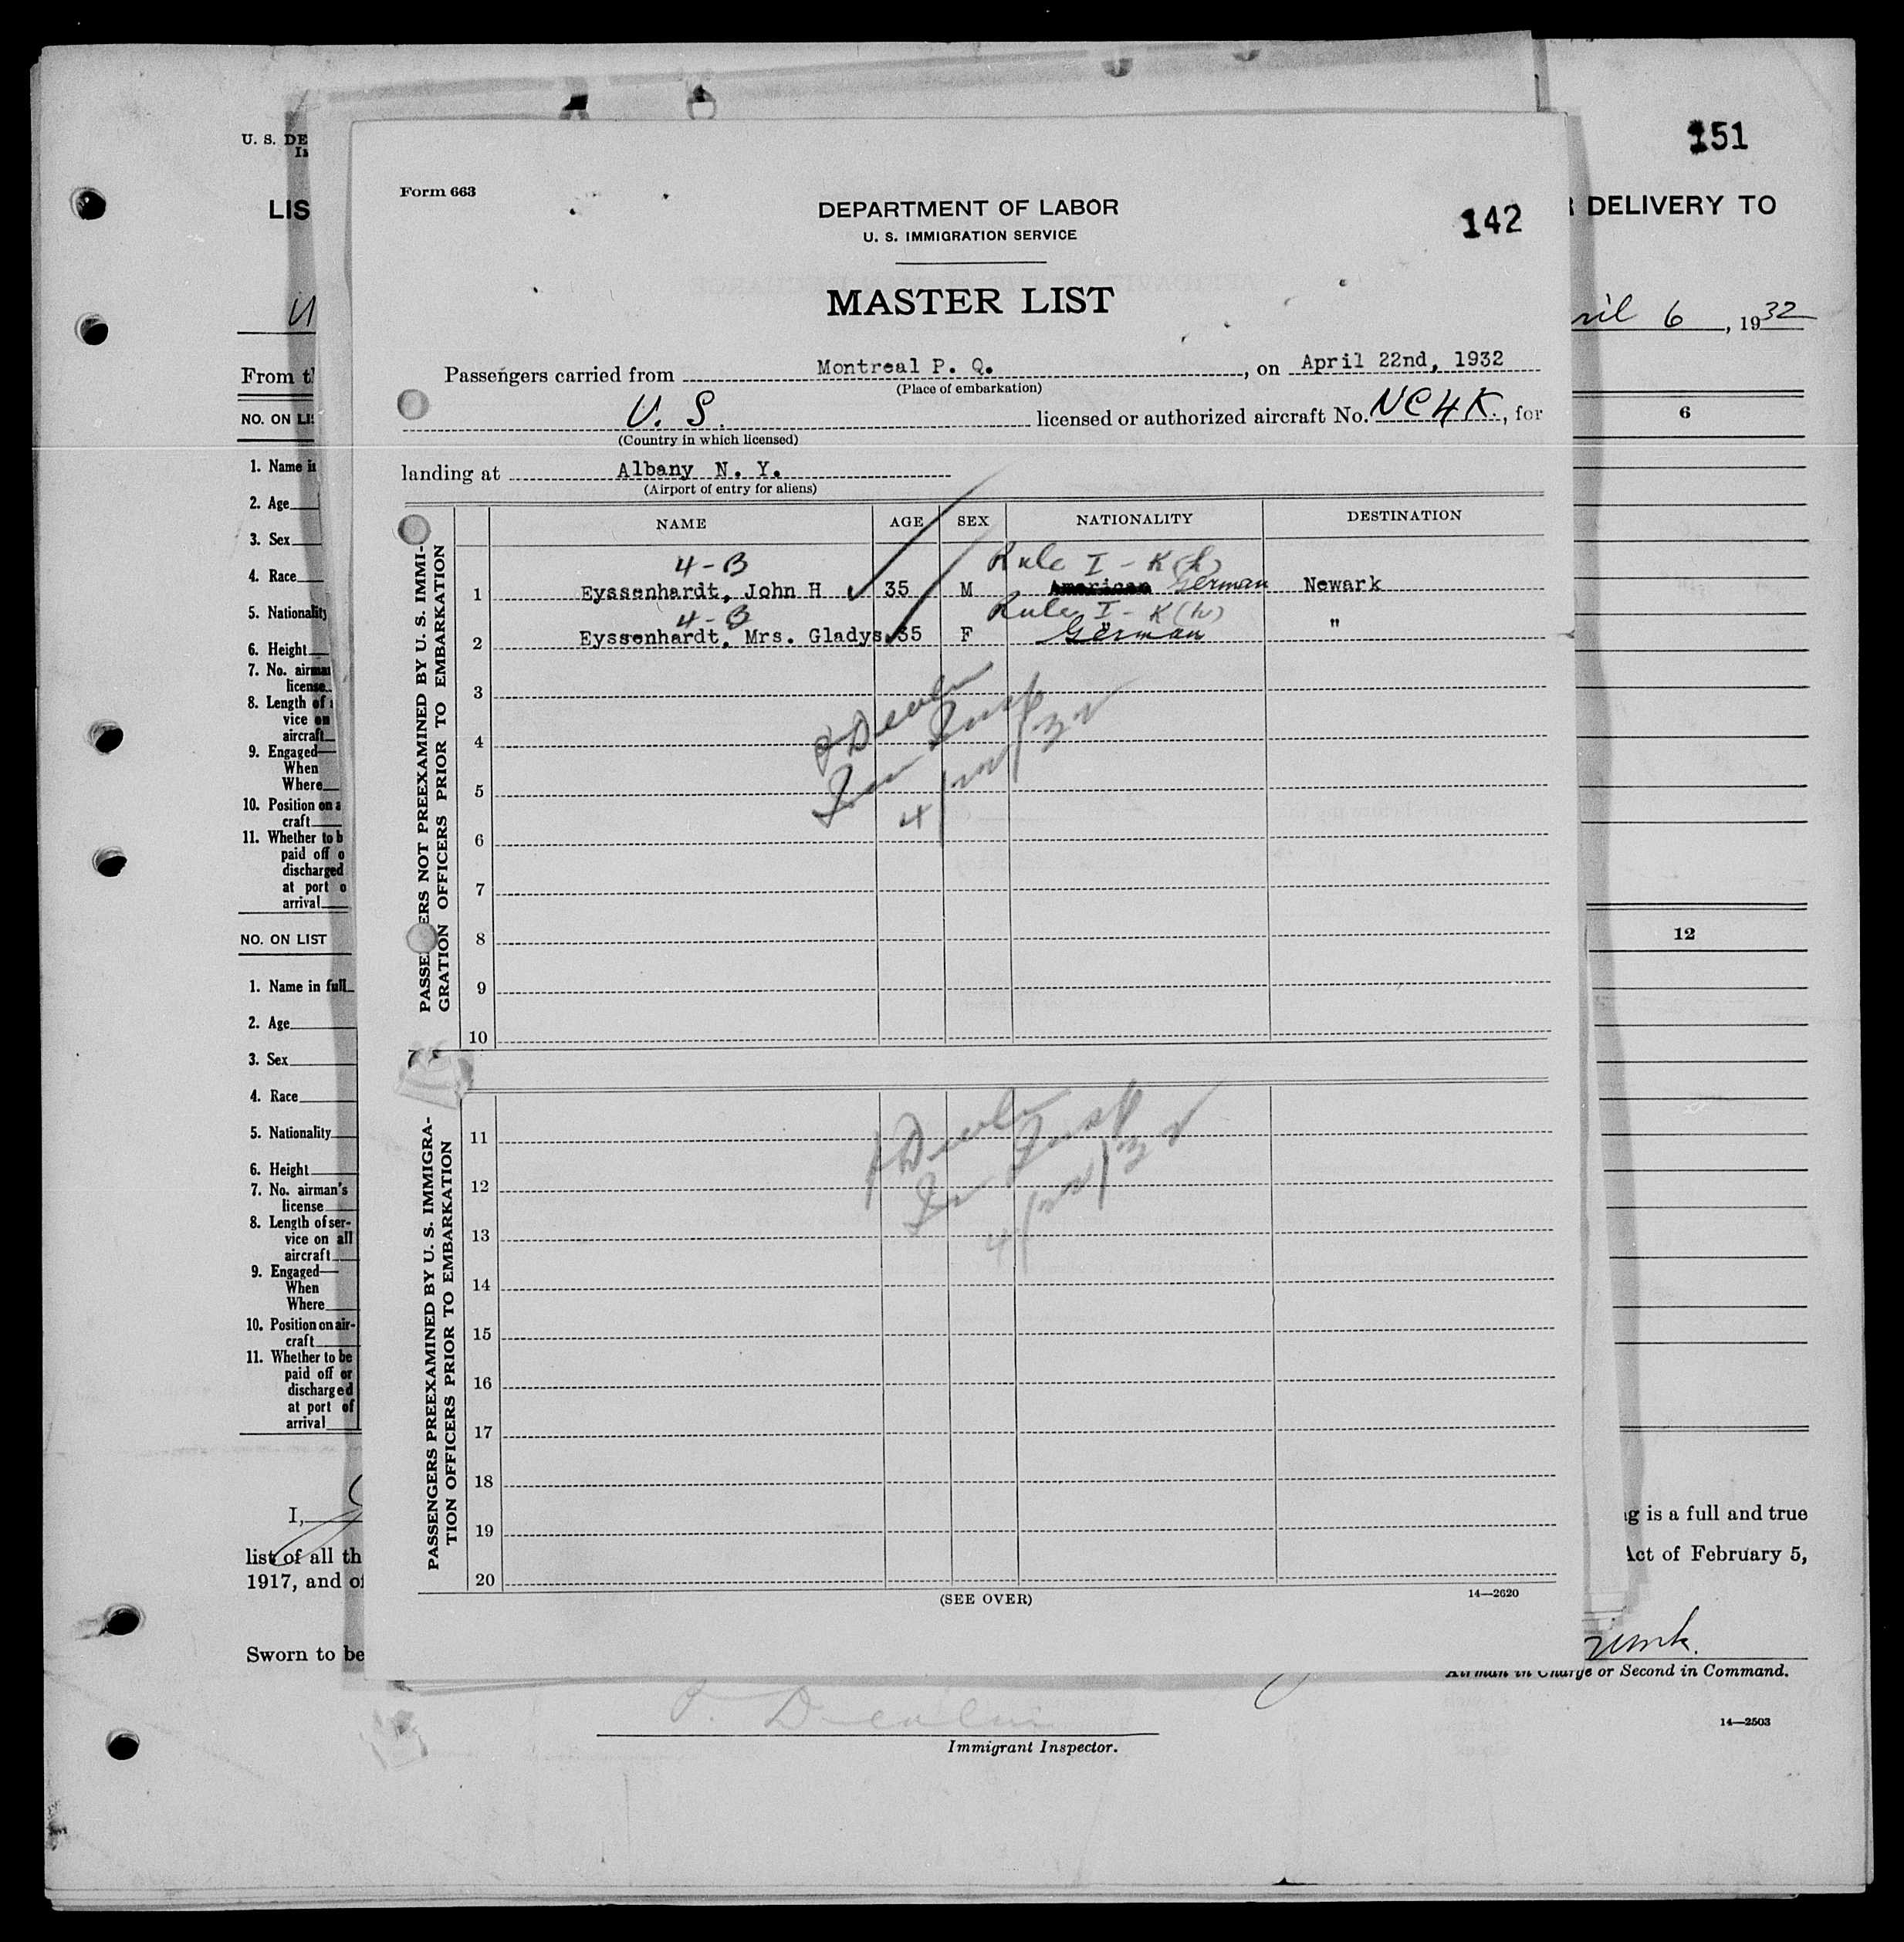 151
U. S. DE
LIS
R DELIVERY TO
ril 6, 1932
From t
NO. ON LIS
6
1. Name i
2. Age
3. Sex
4. Race
5. Nationality
6. Height
7. No. airman
license
8. Length of
vice on
aircraft
9. Engaged—
When
Where
10. Position on a
craft
11. Whether to b
paid off o
discharged
at port o
arrival
NO. ON LIST
12
1. Name in full
2. Age
3. Sex
4. Race
5. Nationality
6. Height
7. No. airman's
license
8. Length of ser-
vice on all
aircraft
9. Engaged—
When
Where
10. Position on air-
craft
11. Whether to be
paid off or
discharged
at port of
arrival
I,
g is a full and true
list of all th
Act of February 5,
1917, and of
Sworn to be
Airman in Charge or Second in Command.
14—2503
Immigrant Inspector.
Form 663
DEPARTMENT OF LABOR
U. S. IMMIGRATION SERVICE
142
MASTER LIST
Passengers carried from Montreal P. Q., on April 22nd, 1932
(Place of embarkation)
U. S. licensed or authorized aircraft No. NC4K, for
(Country in which licensed)
landing at Albany N. Y.
(Airport of entry for aliens)
NAME AGE SEX NATIONALITY DESTINATION
PASSENGERS NOT PREEXAMINED BY U. S. IMMI-
GRATION OFFICERS PRIOR TO EMBARKATION
4-B Rule I - K(h)
1 Eyssenhardt, John H 35 M American German Newark
4-B Rule I - K(h)
2 Eyssenhardt, Mrs. Gladys 35 F " German "
3
4
5
4/22/32
6
7
8
9
10
PASSENGERS PREEXAMINED BY U. S. IMMIGRA-
TION OFFICERS PRIOR TO EMBARKATION
11
12
13
4/22/32
14
15
16
17
18
19
20
(SEE OVER)
14—2620